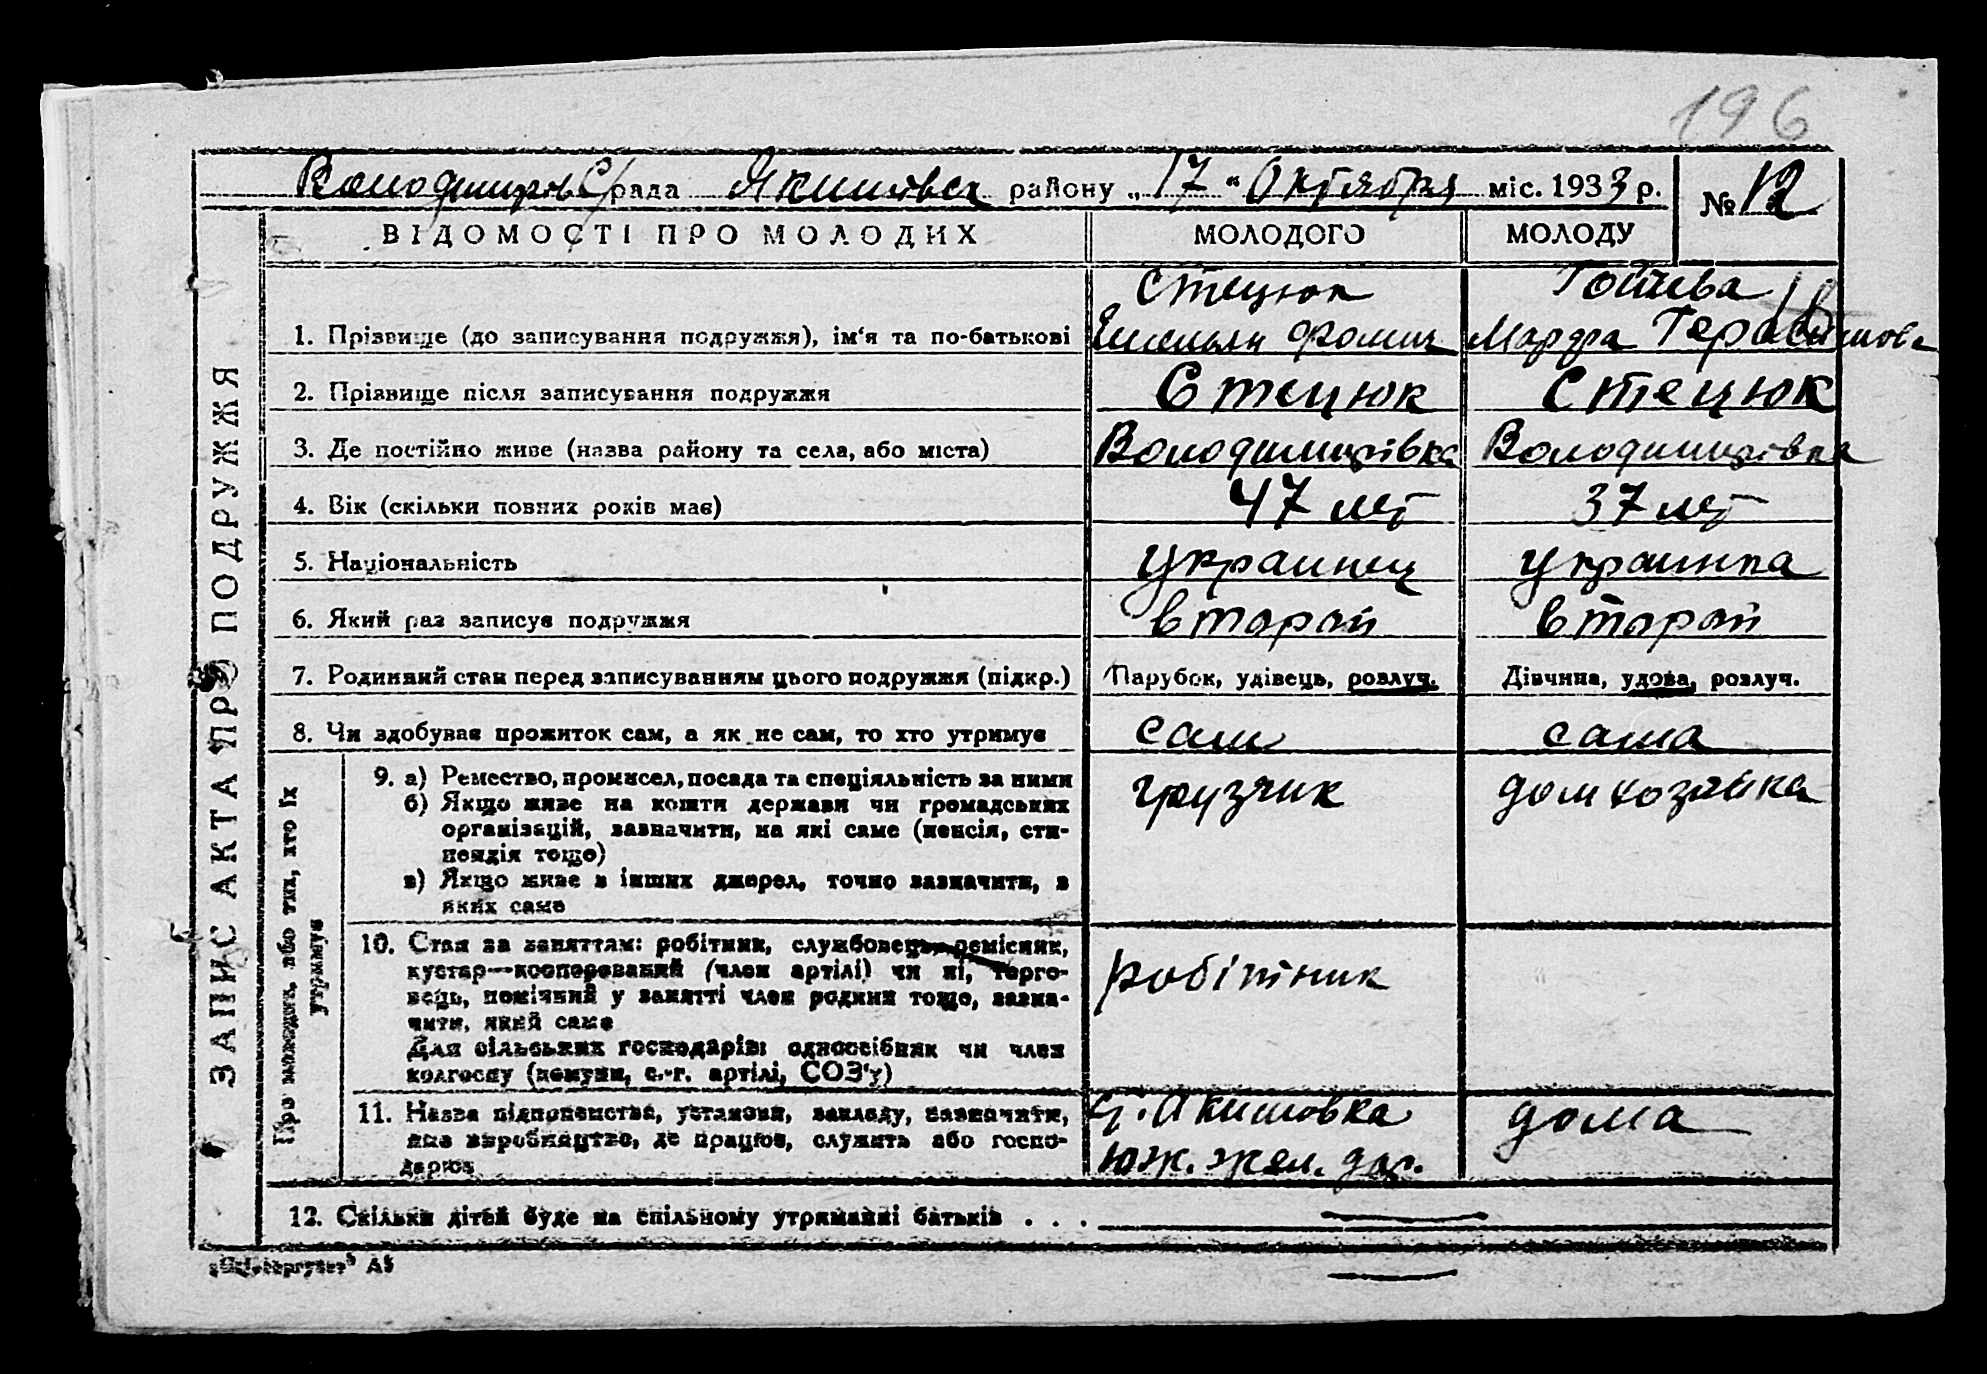 196
Володимирів С/рада Якимовск району „17“ Октября міс. 1933 р. № 12
ВІДОМОСТІ ПРО МОЛОДИХ МОЛОДОГО МОЛОДУ
Стецюк Готева
1. Прізвище (до записування подружжя), ім‘я та по-батькові Емельян Фомич Марфа
2. Прізвище після записування подружжя Стецюк Стецюк
3. Де постійно живе (назва району та села, або міста) Володимирівка Володимирівка
4. Вік (скільки повних років має) 47 лет 37 лет
5. Національність украинец украинка
6. Який раз записує подружжя второй второй
7. Родинний стан перед записуванням цього подружжя (підкр.) Парубок, удівець, розлуч. Дівчина, удова, розлуч.
8. Чи здобуває прожиток сам, а як не сам, то хто утримує сам сама
9. а) Ремество, промисел, посада та спеціяльність за ними грузчик домхозяйка
б) Якщо живе на кошти держави чи громадських
організацій, зазначити, на які саме (пенсія, сти-
пендія тощо)
в) Якщо живе з інших джерел, точно зазначити, з
яких саме
10. Стан за заняттям: робітник, службовець, ремісник,
кустар—кооперований (член артілі) чи ні, торго-
вець, помічний у занятті член родини тощо, зазна-
чити, який саме робітник
Для сільських господарів: одноосібник чи член
колгоспу (комуни, с.-г. артілі, СОЗ‘у)
11. Назва підприємства, установи, закладу, зазначити, ст. Акимовка дома
яке виробництво, де працює, служить або госпо-
дарює Юж. жел. дор.
12. Скільки дітей буде на спільному утриманні батьків . . .
ЗАПИС АКТА ПРО ПОДРУЖЖЯ
Про молодих, або тих, хто їх
утримує